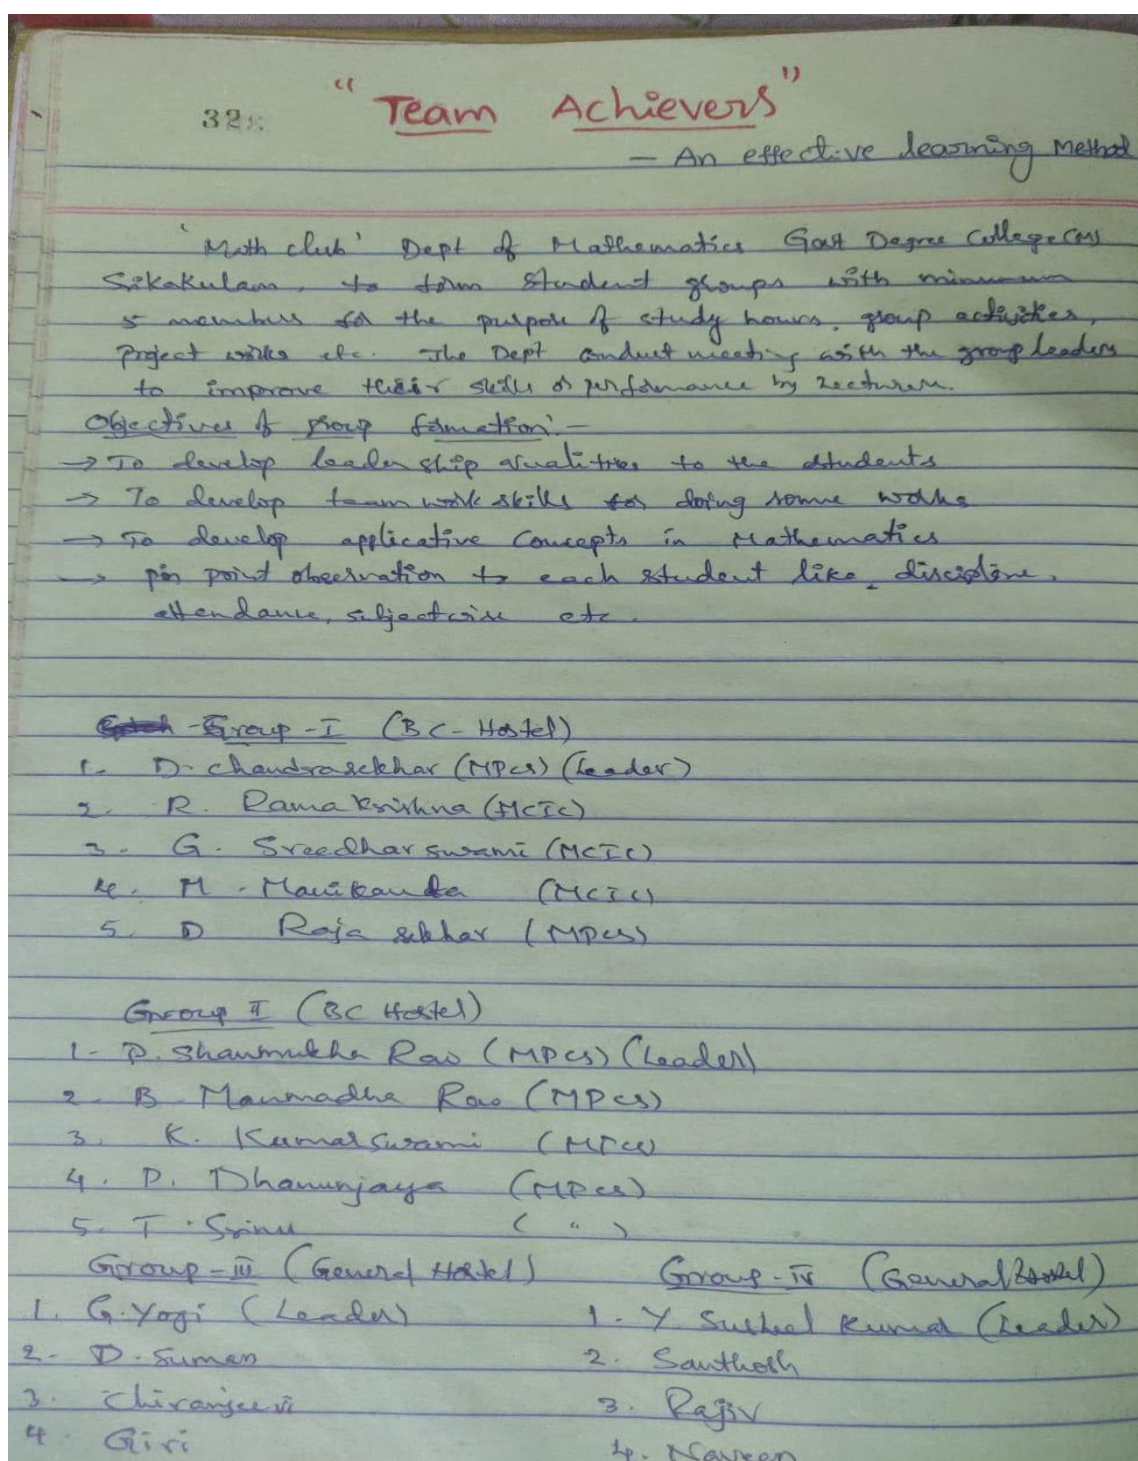 328
"Team Achievers"
— An effective learning Method
'Math club' Dept of Mathematics Govt Degree College (M)
Srikakulam, to form student groups with minimum
5 members for the purpose of study hours, group activities,
Project works etc. The Dept conduct meeting with the group leaders
to improve their skills & performance by Lecturers.
Objectives of group formation:-
→ To develop leader ship qualities to the students
→ To develop team work skills for doing some works
→ To develop applicative Concepts in Mathematics
→ pin point observation to each student like, discipline,
attendance, subjectwise etc.
Group-I (BC-Hostel)
1. D. Chandrasekhar (MPCs) (Leader)
2. R. Rama Krishna (MCIC)
3. G. Sreedhar swami (MCIC)
4. M. Manikanta (MCIC)
5. D Raja sekhar (MPCs)
Group II (BC Hostel)
1. P. Shanmukha Rao (MPCs) (Leader)
2. B. Manmadha Rao (MPCs)
3. K. Kumarswami (MPCs)
4. P. Dhanunjaya (MPCs)
5. T. Srinu ( " )
Group-III (General Hostel)
1. G. Yogi (Leader)
2. D. Suman
3. Chiranjeevi
4. Giri
Group-IV (General Hostel)
1. Y Susheel Kumar (Leader)
2. Santhosh
3. Rajiv
4. Naveen